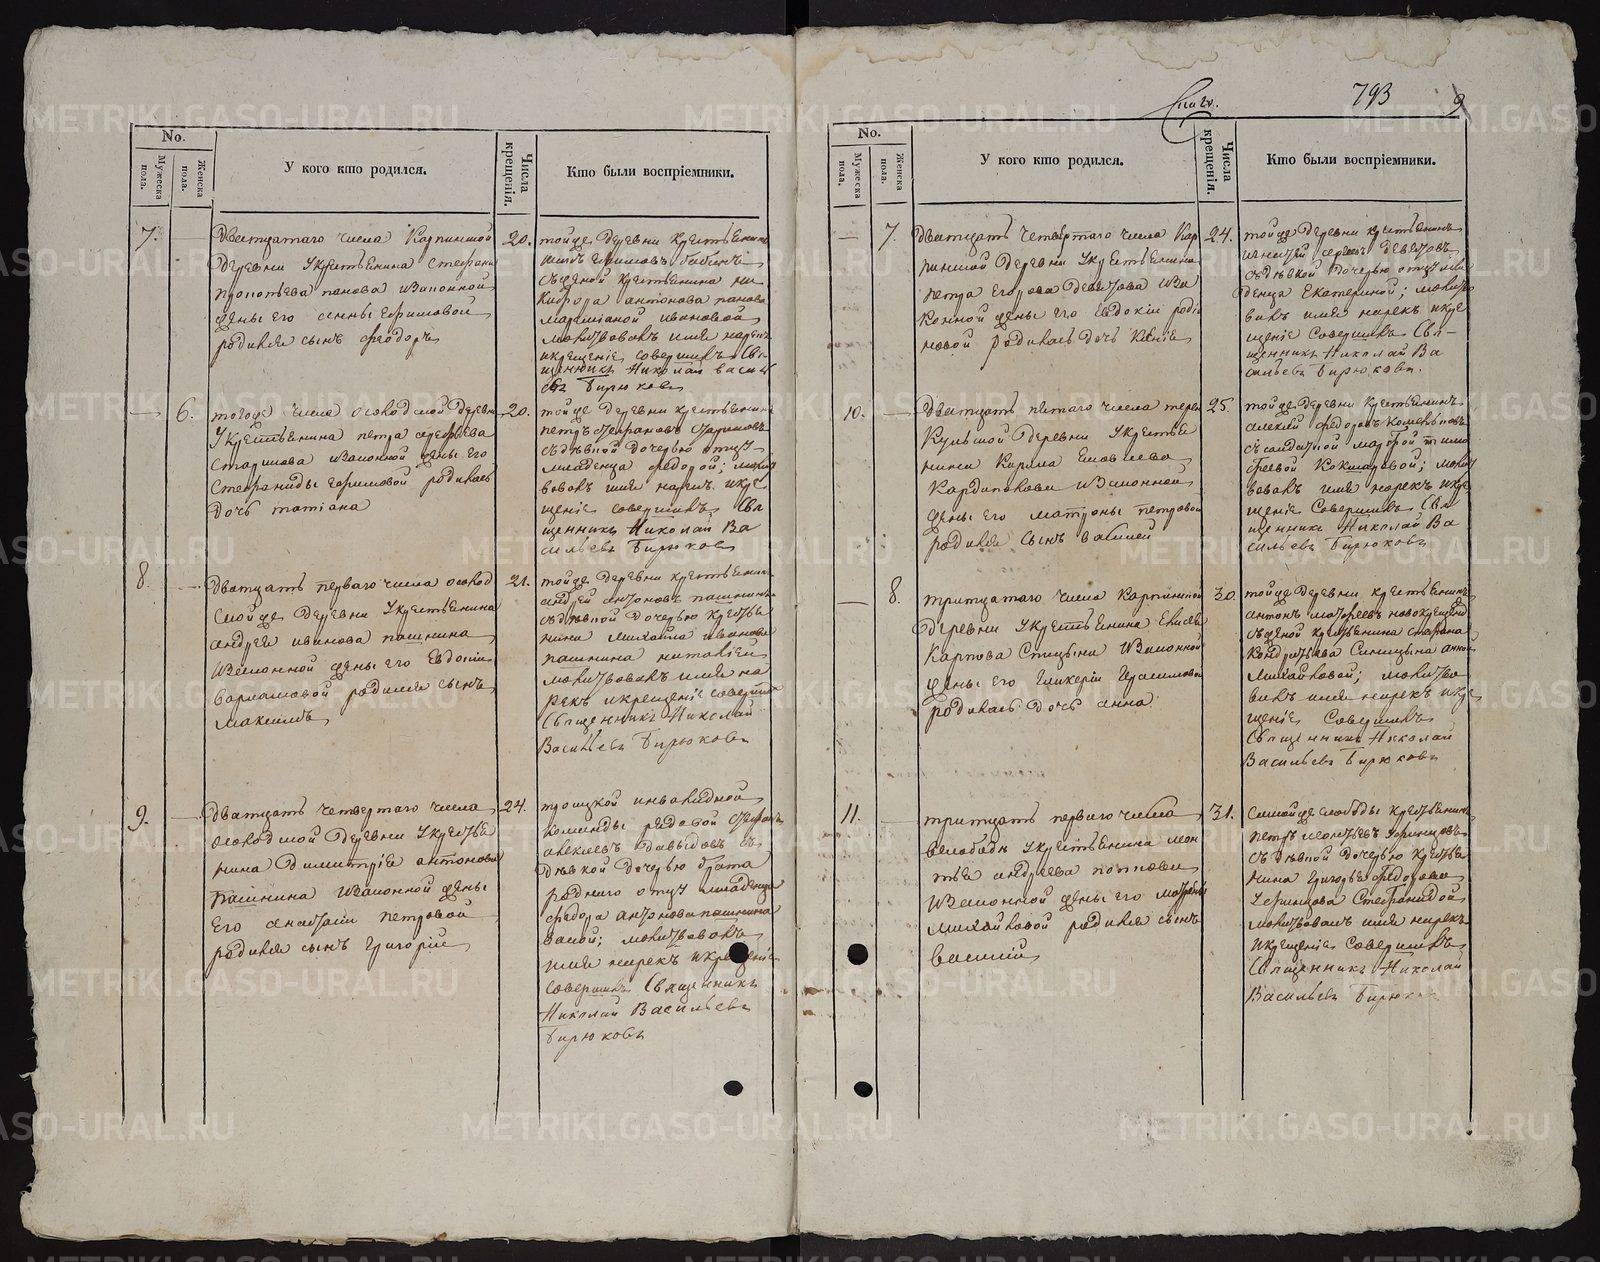 No.
Мужеска пола.
Женска пола.
У кого кто родился.
Числа крещенія.
Кто были воспріемники.
7.
Дватцатаго числа Карпиншой
деревни Укрестьянина Стефана
Панова изаконной
жены его Анны Ефимовой
родился сынъ Феодоръ
20.
тойже деревни крестьянинъ
съженой крестьянина ни
кифора антонова панова
ивановой
молитвовалъ имя нарекъ
икрещеніе совершилъ Свя
щенникъ Николай Василь
евъ Бирюковъ
6.
тогоже числа деревни
Укрестьянина петра
старикова изаконной жены его
Стефаниды Ефимовой родилась
дочь татіана
20.
тойже деревни крестьянинъ
петръ
съдѣвкой дочерью отцу
младенца федорой; молит
вовалъ имя нарекъ икре
щеніе совершилъ Свя
щенникъ Николай Ва
сильевъ Бирюковъ
8.
Дватцать перваго числа
деревни Укрестьянина
андрея иванова пашнина
изаконной жены его Евдокіи
варламовой родился сынъ
Максимъ
21.
тойже деревни крестьянинъ
андрей антоновъ пашнинъ
съдѣвкой дочерью кресть
нина михаила иванова
пашнина наталіей
молитвовалъ имя на
рекъ икрещеніе совершилъ
Священникъ Николай
Васильевъ Бирюковъ
9.
Дватцать четвертаго числа
деревни Укрестья
нина Димитрія антонова
Пашнина изаконной жены
его анастасіи петровой
родился сынъ Григорій
24.
троицкой инвалидной
команды рядовой
давыдовъ съ
дѣвкой дочерью брата
роднаго отцу младенца
федора антонова пашнина
молитвовалъ
имя нарекъ икрещеніе
совершилъ Священникъ
Николай Васильевъ
Бирюковъ
793
9
No.
Мужеска пола.
Женска пола.
У кого кто родился.
Числа крещенія.
Кто были воспріемники.
7.
Дватцать четвертаго числа Кар
пиншой деревни Укрестьянина
петра Егорова Девятова иза
конной жены его Евдокіи родіо
новой родилась дочь Ксенія
24.
тойже деревни крестьянинъ
Девятовъ
съдѣвкой дочерью отцу мла
денца Екатериной; молит
валъ имя нарекъ икре
щеніе Совершилъ Свя
щенникъ Николай Ва
сильевъ Бирюковъ.
10.
Дватцать пятаго числа терен
Кульшой деревни Укрестья
нина Кирила
Кардаполова изаконной
жены его матроны петровой
родился сынъ василей
25.
тойже деревни крестьянинъ
алексѣй федоровъ
съ солдаткой марфой тимо
феевой Кокшаровой; молит
вовалъ имя нарекъ икре
щеніе Совершилъ Свя
щенникъ Николай Ва
сильевъ Бирюковъ
8.
тритцатаго числа Карпиншой
деревни Укрестьянина Елисея
Карпова Спицына изаконной
жены его Гликеріи Герасимовой
родилась дочь анна
30.
тойже деревни крестьянинъ
антонъ
съженой крестьянина стефана
Кондратьева Синицына анной
Михайловой; молитво
валъ имя нарекъ икре
щеніе Совершилъ
Священникъ Николай
Васильевъ Бирюковъ
11.
тритцать перваго числа
Укрестьянина леон
тья андреева
изаконной жены его
михайловой родился сынъ
василій
31.
Самойже слободы крестьянинъ
петръ леонтьевъ
съдѣвкой дочерью крестья
нина Григорья федорова
Стефанидой
молитвовалъ имя нарекъ
икрещеніе Совершилъ
Священникъ Николай
Васильевъ Бирюковъ
METRIKI.GASO-URAL.RU